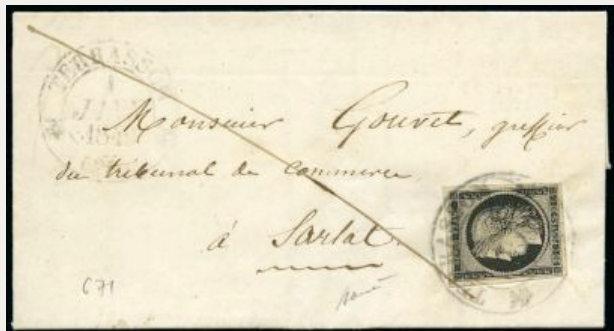 TERRASS
1
JANV
184
Monsieur Gouvet, greffier
du tribunal de commerce
à Sarlat.
671